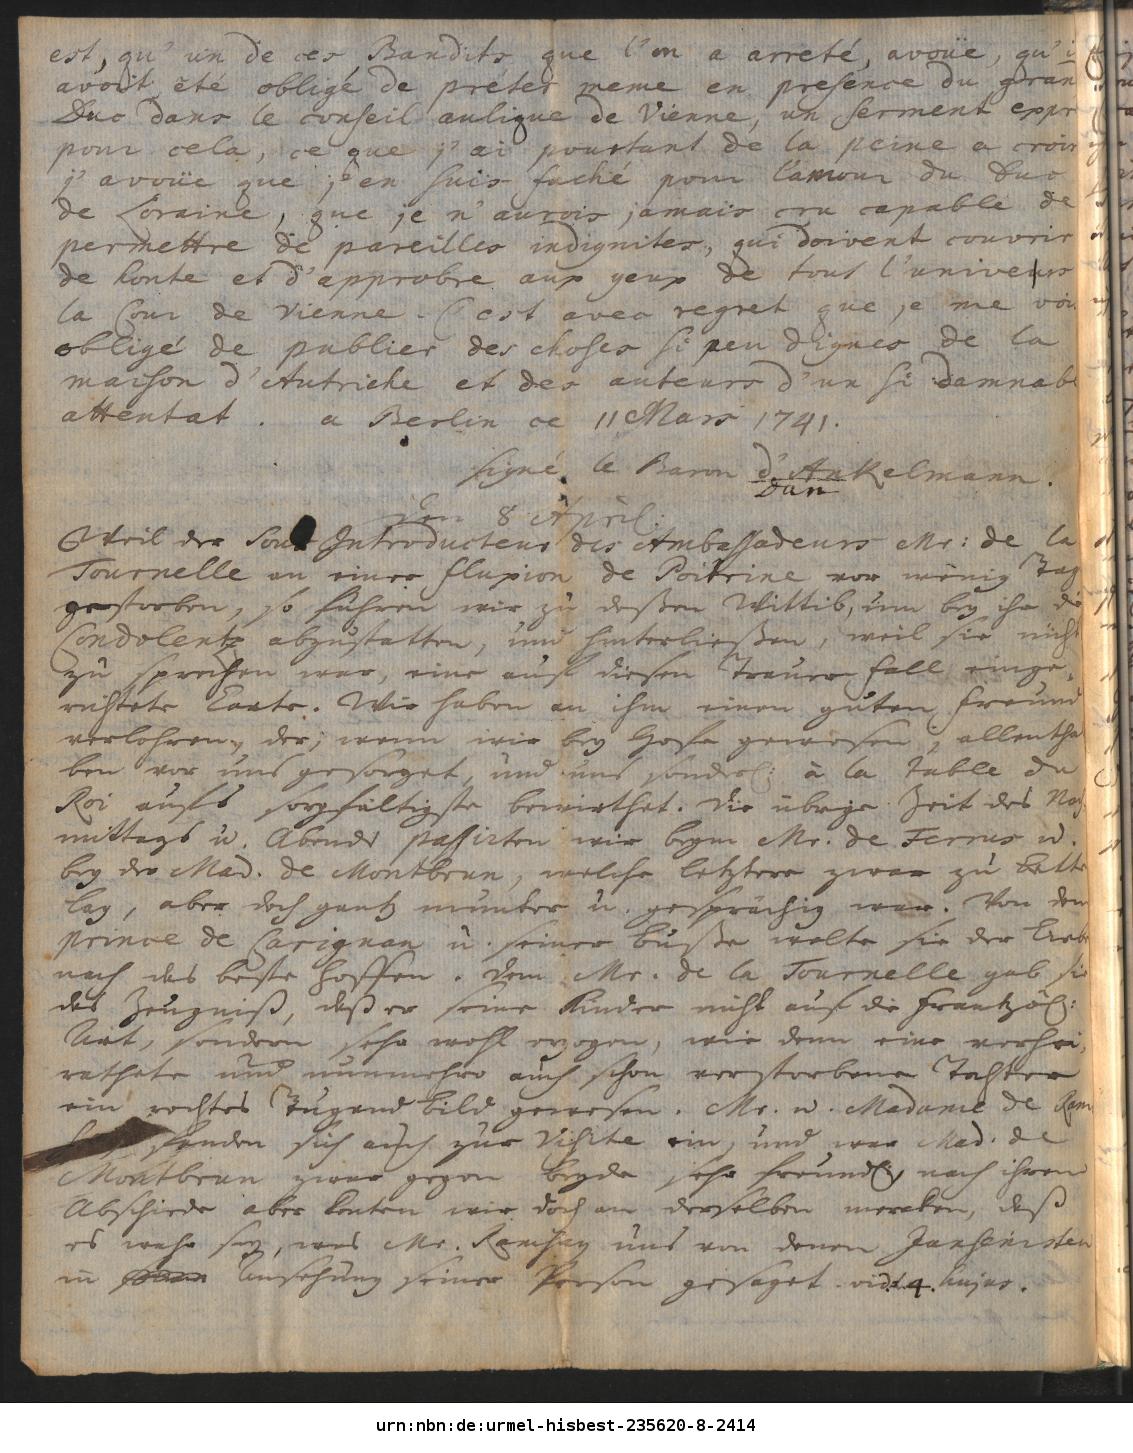 est, qu'un de ces Bandits que l'on a arreté, avoüe, qu'i
avoit été obligé de préter meme en presence du gran
Duc dans le conseil aulique de Vienne, un serment expr
pour cela, ce que j'ai pourtant de la peine a croir
j'avoüe que j'en suis faché pour l'amour du Duc
de Loraine, que je n'aurois jamais cru capable de
permettre de pareilles indignites, qui doivent couvrir
de honte et d'approbre aux yeux de tout l'univers
la Cour de Vienne. C'est avec regret que je me voi
obligé de publier des choses si peu dignes de la
maison d'Autriche et des auteurs d'un si damnabl
attentat. a Berlin ce 11 Mars 1741.
signé le Baron d'Ankelmann.
Dan
Den 8 April.
Weil der Sous Introducteur des Ambassadeurs Mr: de la
Tournelle an einer fluxion de Poitrine vor wenig Tag
gestorben, so fuhren wir zu deßen Wittib, um bey ihr die
Condolentz abzustatten, und hinterließen, weil sie nicht
zu sprechen war, eine auf diesen Trauer fall einge-
richtete Carte. Wir haben an ihm einen guten Freund
verlohren, der, wenn wir bey Hofe gewesen, allentha
ben vor uns gesorget, und uns sonderl: à la table du
Roi aufs sorgfältigste bewirthet. Die übrige Zeit des Nach
mittags u. Abends passirten wir beym Mr. de Ferrus u.
bey der Mad. de Montbrun, welche letztere zwar zu bette
lag, aber doch gantz munter u. gesprächig war. Von dem
prince de Carignan u. seiner buße wolte sie der Liebe
nach das beste hoffen. Dem Mr. de la Tournelle gab sie
das Zeugniß, daß er seine Kinder nicht auf die frantzös:
Art, sondern sehr wohl erzogen, wie denn eine verhei-
rathete und nunmehro auch schon verstorbene Tochter
ein rechtes Tugend bild gewesen. Mr. u. Madame de Ram
fanden sich auch zur Visite ein, und war Mad. de
Montbrun zwar gegen beyde sehr freundl., nach ihrem
Abschiede aber konten wir doch an derselben mercken, daß
es wahr sey, was Mr. Ramsay uns von denen Jansenisten
in Ansehung seiner Person gesaget. vid. 4. hujus.
urn:nbn:de:urmel-hisbest-235620-8-2414